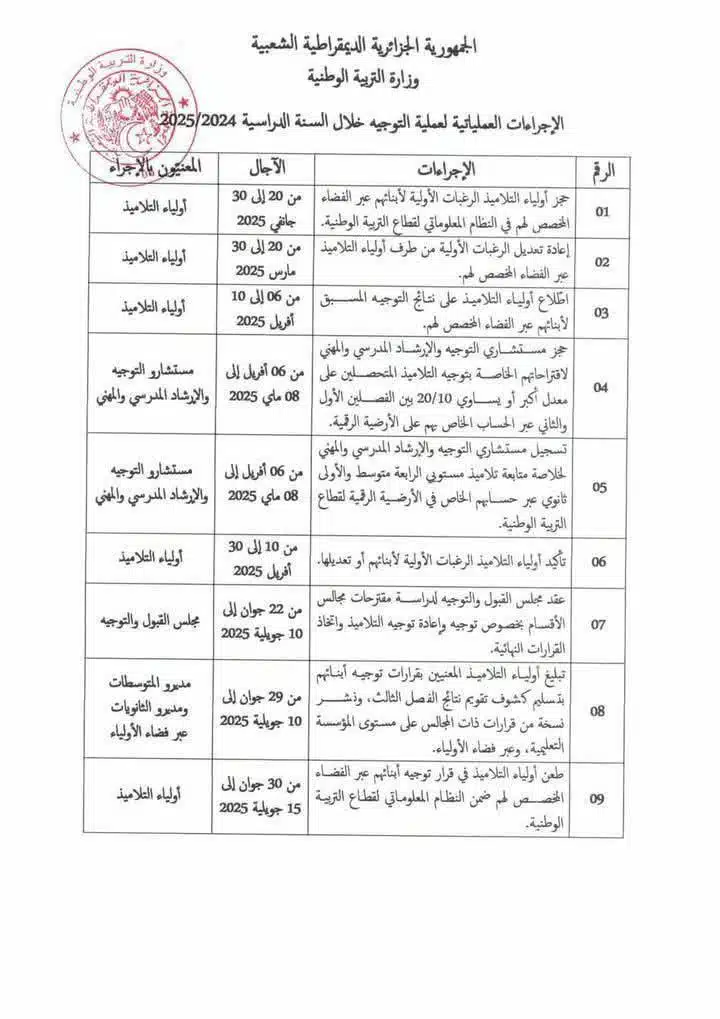 الجمهورية الجزائرية الديمقراطية الشعبية
وزارة التربية الوطنية
وزارة التربية الوطنية
الإجراءات العملياتية لعملية التوجيه خلال السنة الدراسية 2025/2024
الرقم الإجراءات الآجال المعنيّون بالإجراء
01
حجز أولياء التلاميذ الرغبات الأولية لأبنائهم عبر الفضاء
المخصص لهم في النظام المعلوماتي لقطاع التربية الوطنية.
من 20 إلى 30
جانفي 2025
أولياء التلاميذ
02
إعادة تعديل الرغبات الأولية من طرف أولياء التلاميذ
عبر الفضاء المخصص لهم.
من 20 إلى 30
مارس 2025
أولياء التلاميذ
03
اطّلاع أولياء التلاميذ على نتائج التوجيه المسبق
لأبنائهم عبر الفضاء المخصص لهم.
من 06 إلى 10
أفريل 2025
أولياء التلاميذ
04
حجز مستشاري التوجيه والإرشاد المدرسي والمهني
لاقتراحاتهم الخاصة بتوجيه التلاميذ المتحصلين على
معدل أكبر أو يساوي 20/10 بين الفصلين الأول
والثاني عبر الحساب الخاص بهم على الأرضية الرقمية.
من 06 أفريل إلى
08 ماي 2025
مستشارو التوجيه
والإرشاد المدرسي والمهني
05
تسجيل مستشاري التوجيه والإرشاد المدرسي والمهني
لخلاصة متابعة تلاميذ مستويي الرابعة متوسط والأولى
ثانوي عبر حسابهم الخاص في الأرضية الرقمية لقطاع
التربية الوطنية.
من 06 أفريل إلى
08 ماي 2025
مستشارو التوجيه
والإرشاد المدرسي والمهني
06
تأكيد أولياء التلاميذ الرغبات الأولية لأبنائهم أو تعديلها.
من 10 إلى 30
أفريل 2025
أولياء التلاميذ
07
عقد مجلس القبول والتوجيه لدراسة مقترحات مجالس
الأقسام بخصوص توجيه وإعادة توجيه التلاميذ واتخاذ
القرارات النهائية.
من 22 جوان إلى
10 جويلية 2025
مجلس القبول والتوجيه
08
تبليغ أولياء التلاميذ المعنيين بقرارات توجيه أبنائهم
بتسليم كشوف تقويم نتائج الفصل الثالث، ونشر
نسخة من قرارات ذات المجالس على مستوى المؤسسة
التعليمية، وعبر فضاء الأولياء.
من 29 جوان إلى
10 جويلية 2025
مديرو المتوسطات
ومديرو الثانويات
عبر فضاء الأولياء
09
طعن أولياء التلاميذ في قرار توجيه أبنائهم عبر الفضاء
المخصص لهم ضمن النظام المعلوماتي لقطاع التربية
الوطنية.
من 30 جوان إلى
15 جويلية 2025
أولياء التلاميذ